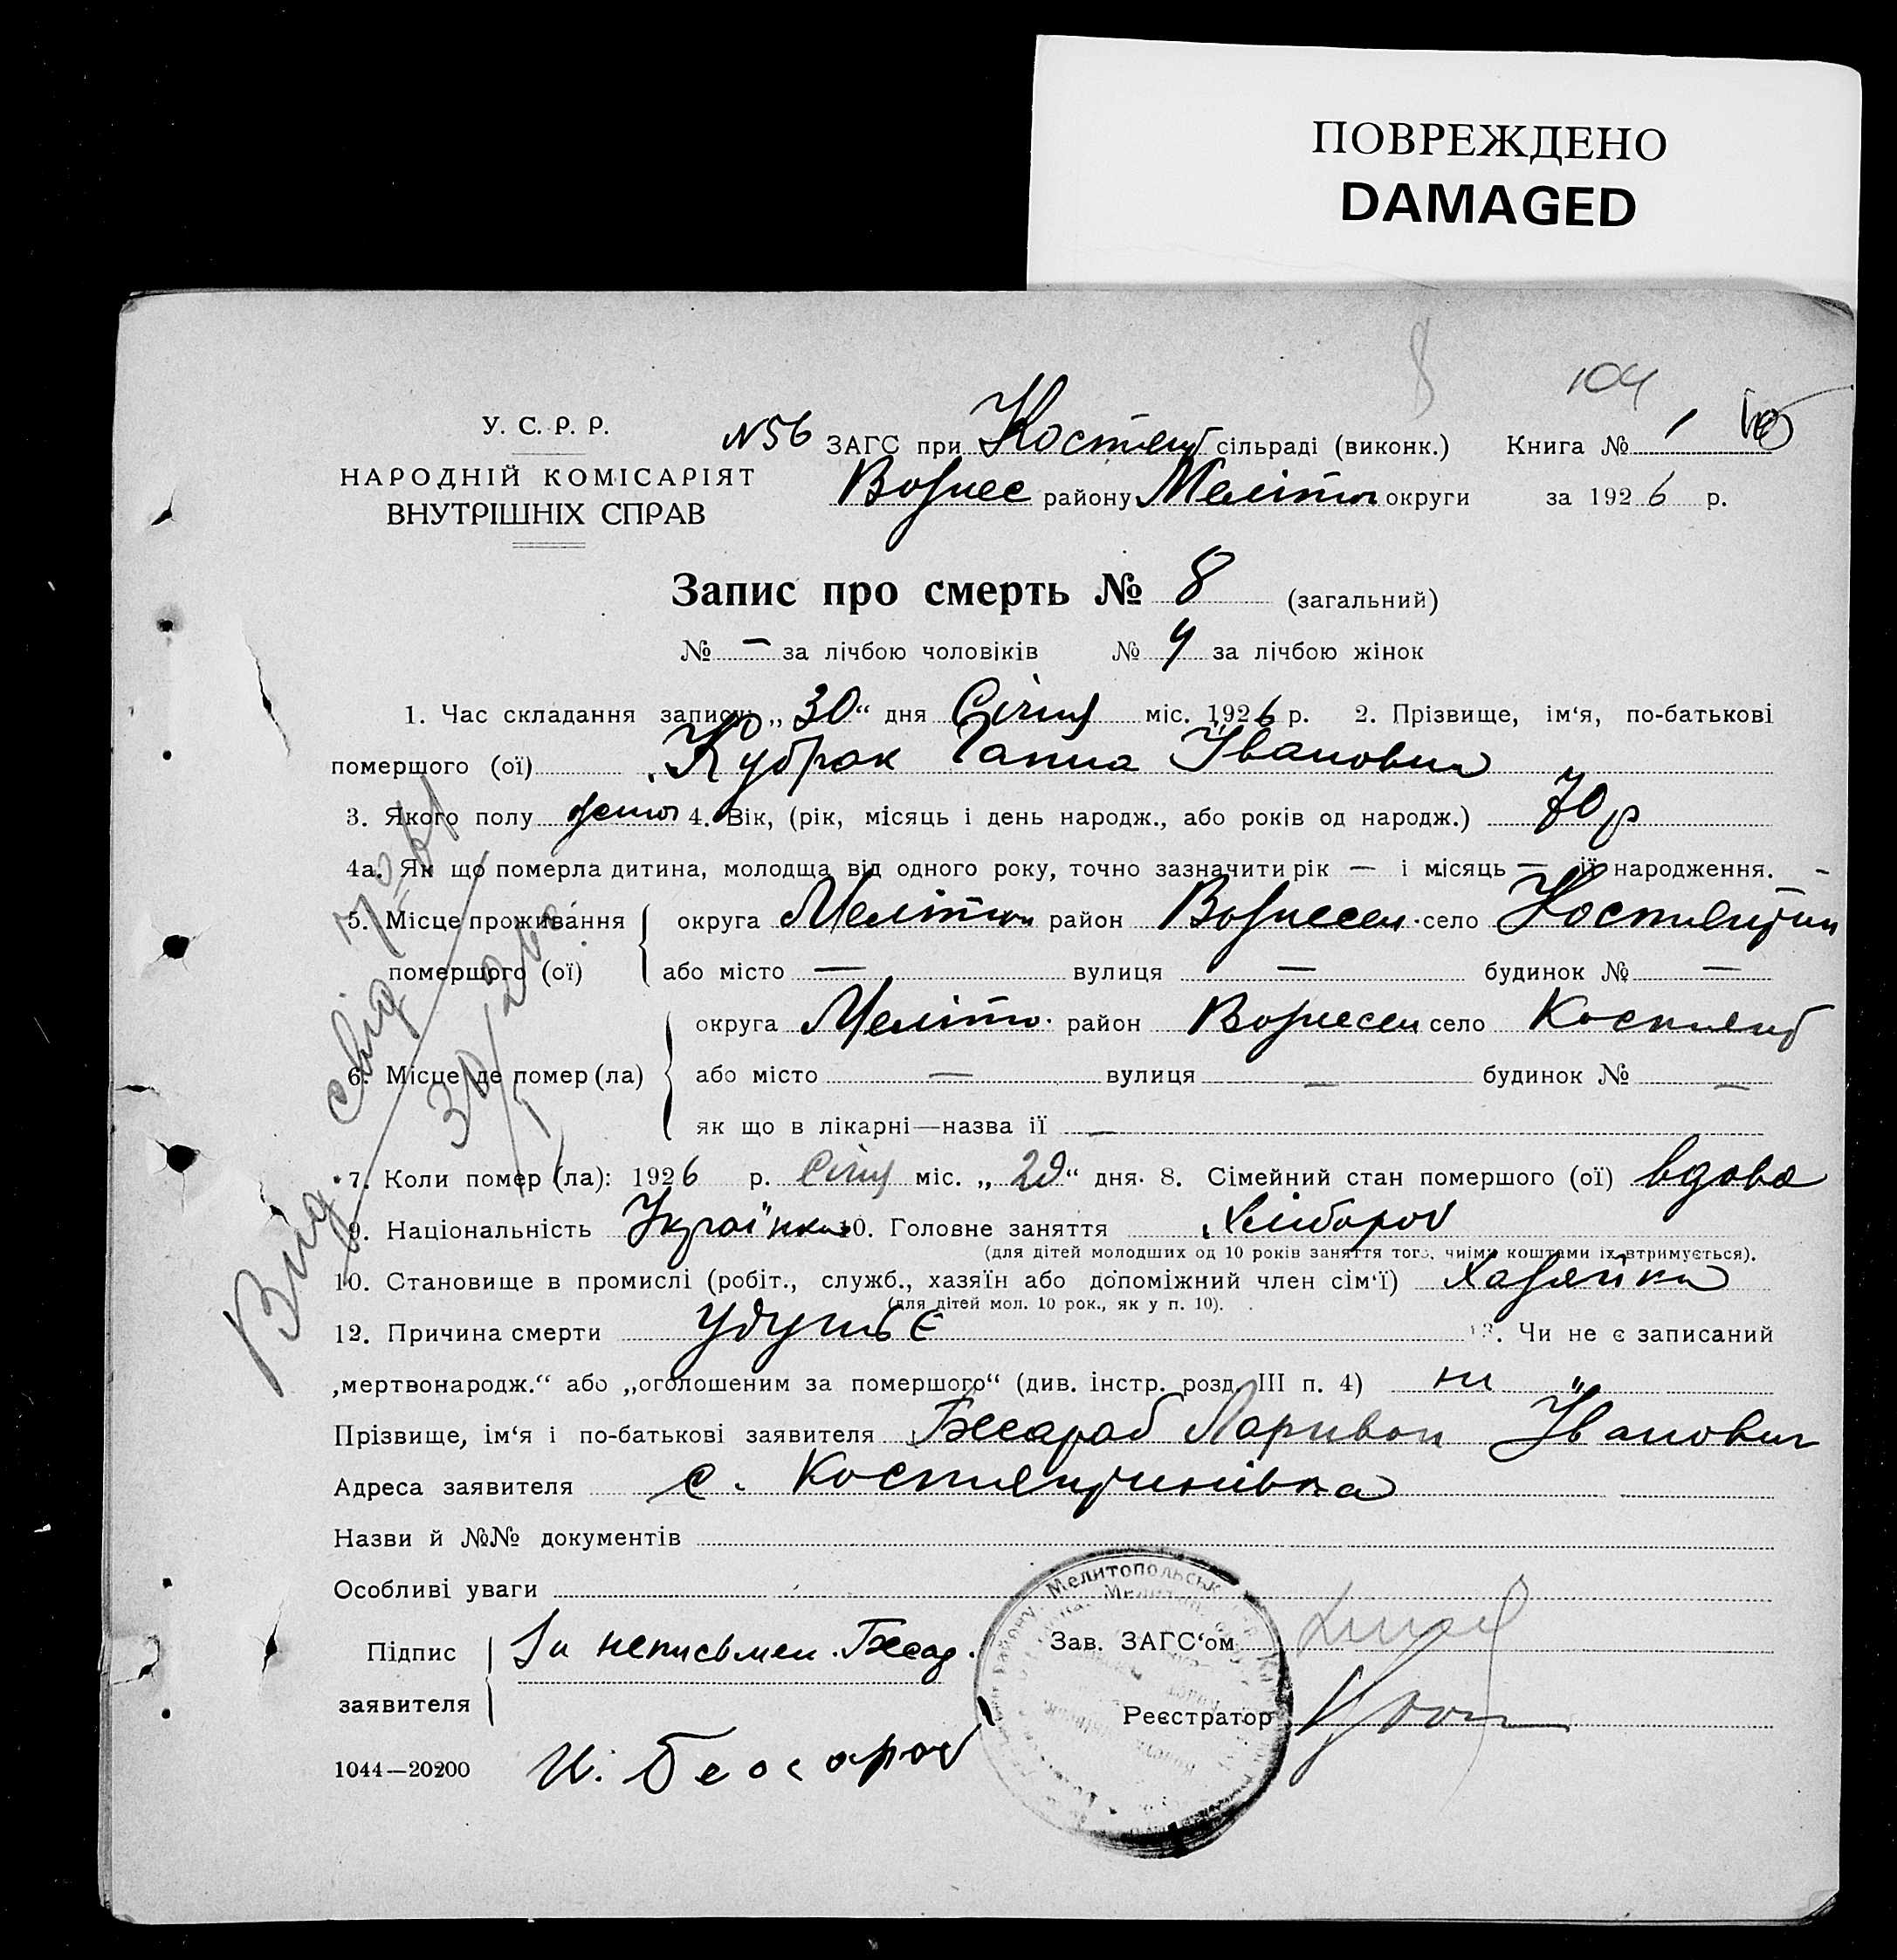 ПОВРЕЖДЕНО
DAMAGED
8 104
У. С. Р. Р.
НАРОДНІЙ КОМІСАРІЯТ
ВНУТРІШНІХ СПРАВ
№56 ЗАГС при Костянт сільраді (виконк.) Книга № 1
Вознес району Меліто округи за 1926 р.
Запис про смерть № 8 (загальний)
№ — за лічбою чоловіків № 4 за лічбою жінок
1. Час складання запису: „30“ дня Січня міс. 1926 р. 2. Прізвище, ім‘я, по-батькові
помершого (ої) Кубрак Ганна Івановна
3. Якого полу жіно 4. Вік, (рік, місяць і день народж., або років од народж.) 70 р
4а. Як що померла дитина, молодща від одного року, точно зазначити рік — і місяць — її народження. —
5. Місце проживання помершого (ої) округа Меліто район Вознесен. село Костянтин
або місто — вулиця — будинок № —
6. Місце де помер (ла) округа Меліто. район Вознесен село Костянт
або місто — вулиця — будинок № —
як що в лікарні—назва ії —
7. Коли помер (ла): 1926 р. Січня міс. „29“ дня. 8. Сімейний стан помершого (ої) вдова
9. Національність Українка 10. Головне заняття Хлібороб
(для дітей молодших од 10 років заняття того, чиїми коштами їх втримується).
10. Становище в промислі (робіт., служб., хазяїн або допоміжний член сім‘ї) Хазяйка
(для дітей мол. 10 рок., як у п. 10).
12. Причина смерти Удушьє 13. Чи не є записаний
„мертвонародж.“ або „оголошеним за помершого“ (див. інстр. розд. III п. 4) ни
Прізвище, ім‘я і по-батькові заявителя Бесараб Ларивон Іванович
Адреса заявителя с. Костянтинівка
Назви й №№ документів
Особливі уваги
Підпис заявителя За неписьмен. Бесар.
Зав. ЗАГС‘ом
Реєстратор
И. Бесараб
1044—20200
Мелитопольськ
Вид свід № 61
30/I 26